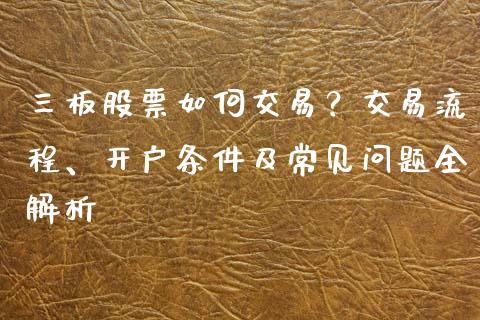 三板股票如何交易？交易流
程、开户条件及常见问题全
解析